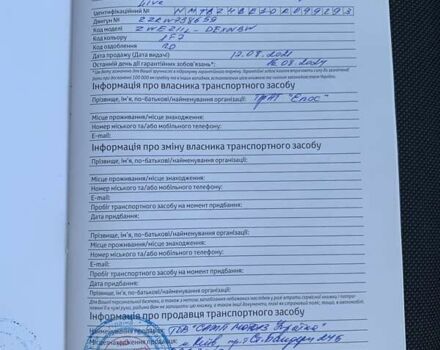 Live
Ідентифікаційний №
Двигун № 2ZRW798659
Код моделі ZWE211L-DEXNBW
Код кольору 1F7
Код оздоблення 20
Дата продажу (Дата видачі) 17.08.2021
Останній день дії гарантійних зобов'язань*: 16.08.2024
Інформація про власника транспортного засобу
Прізвище, ім'я, по-батькові/найменування організації: ПрАТ "Елос"
Місце проживання/місце знаходження:
Номер міського та/або мобільного телефону:
E-mail:
Інформація про зміну власника транспортного засобу
Прізвище, ім'я, по-батькові/найменування організації:
Місце проживання/місце знаходження:
Номер міського та/або мобільного телефону:
E-mail:
Пробіг транспортного засобу на момент придбання:
Дата придбання:
Прізвище, ім'я, по-батькові/найменування організації:
Місце проживання/місце знаходження:
Номер міського та/або мобільного телефону:
E-mail:
Пробіг транспортного засобу на момент придбання:
Дата придбання:
Інформація про продавця транспортного засобу
Найменування продавця: ТОВ
Місцезнаходження продавця: м. Київ,